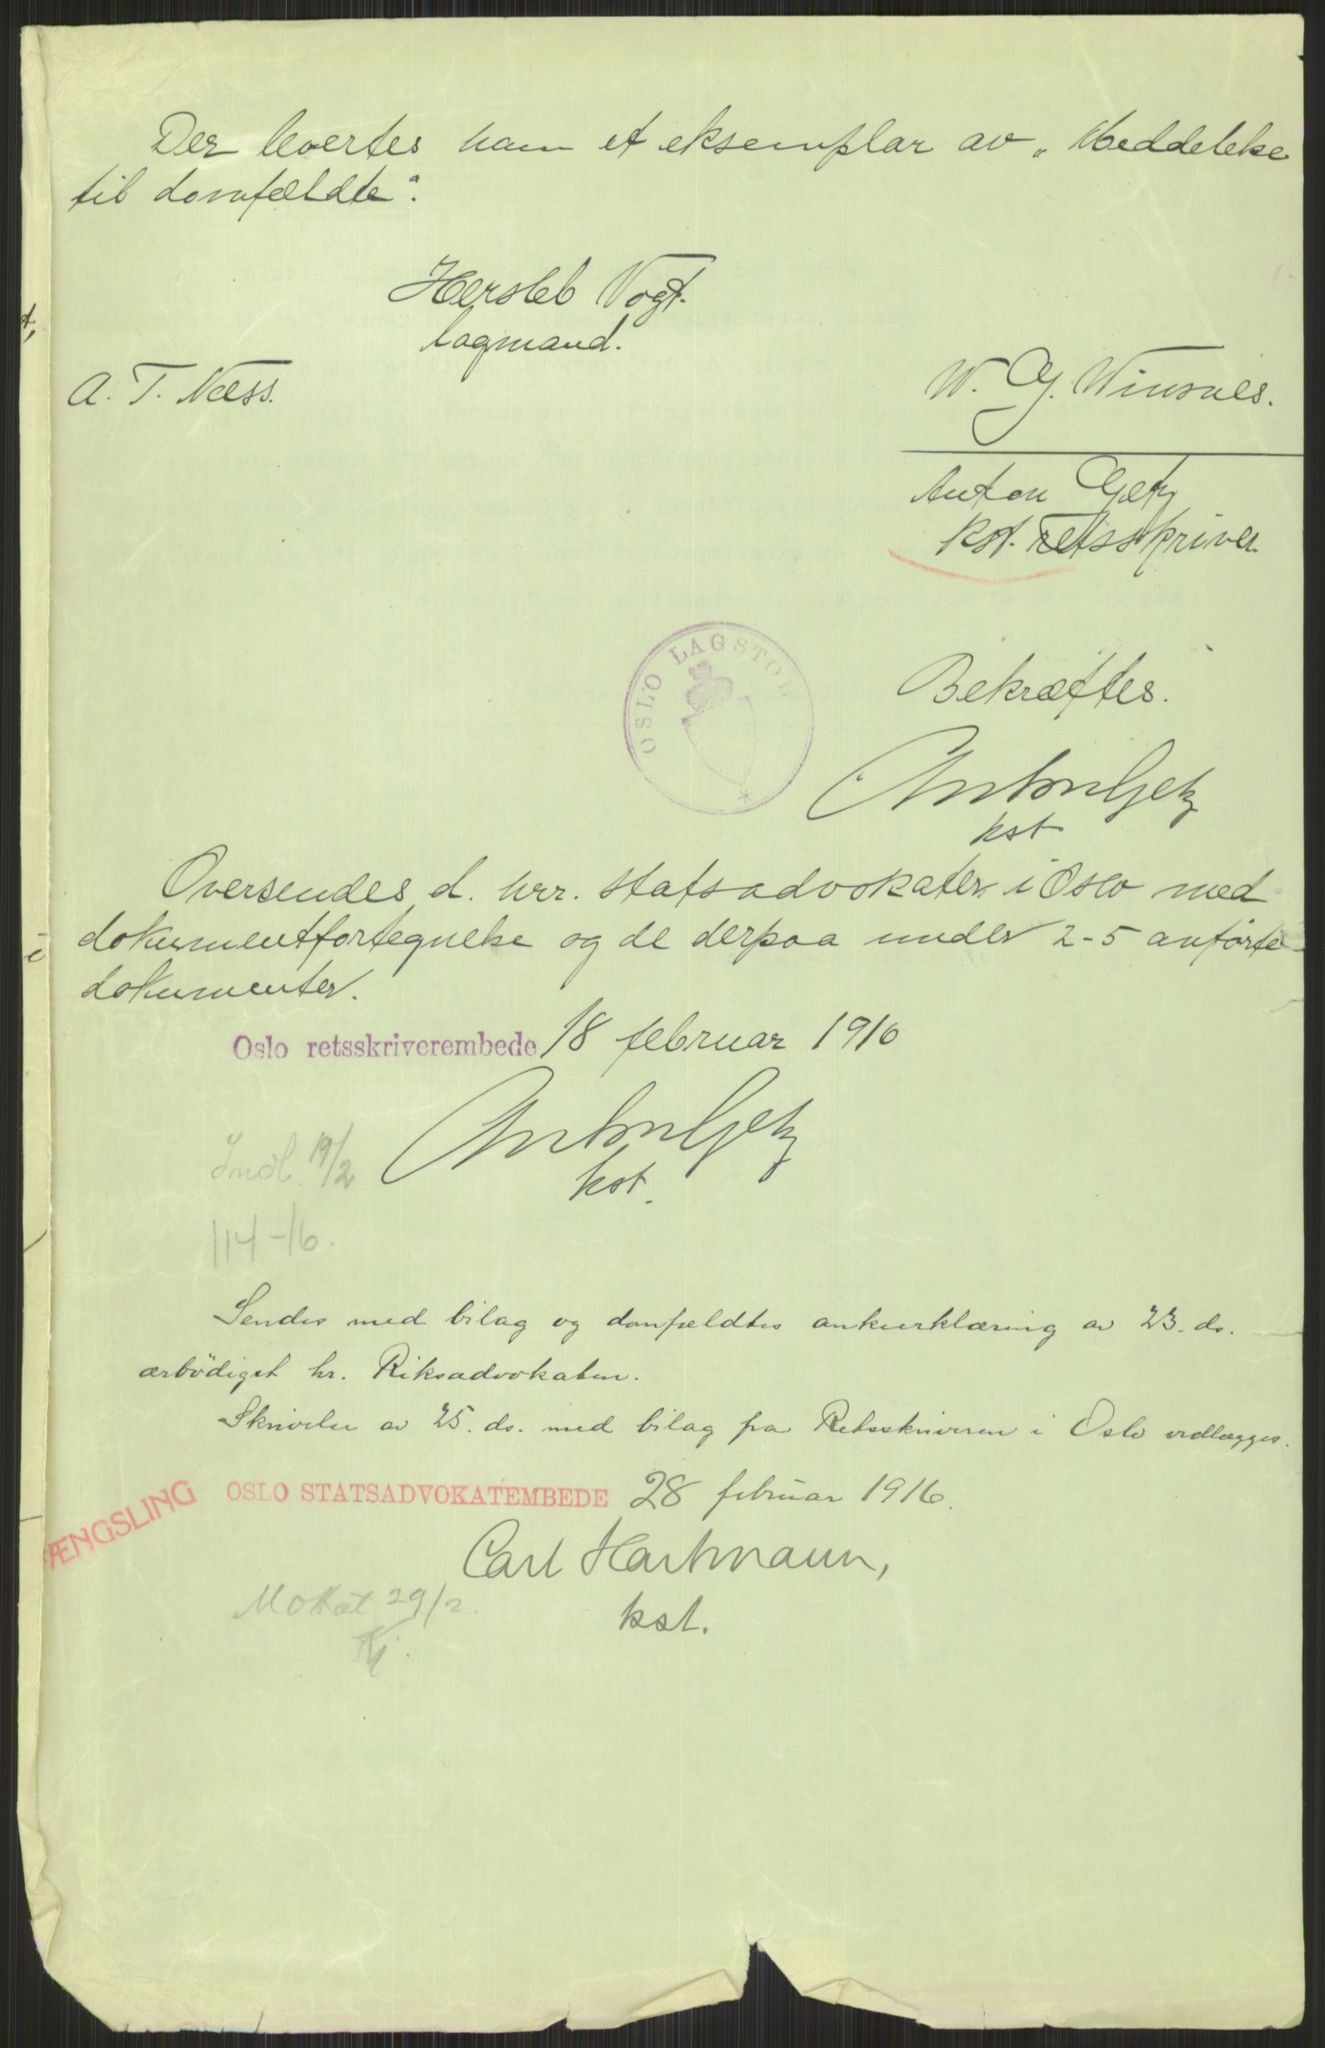 Der levertes ham et eksemplar av „Meddelelse
til domfældte“.
Hersleb Vogt.
lagmand.
A. T. Næss.
W. G. Winsnes.
Anton Getz
kst. retsskriver
OSLO LAGSTOL
Bekræftes.
Anton Getz
kst
Oversendes d. hrr. statsadvokater i Oslo med
dokumentfortegnelse og de derpaa under 2-5 anførte
dokumenter.
Oslo retsskriverembede 18 februar 1916
Anton Getz
kst.
Indl. 19/2
114-16.
Sendes med bilag og domfældtes ankeerklæring av 23. ds.
ærbödigst hr. Riksadvokaten.
Skrivelse av 25. ds. med bilag fra Retsskriveren i Oslo vedlægges.
ÆNGSLING
OSLO STATSADVOKATEMBEDE 28 februar 1916.
Carl Hartmann,
kst.
Mottat 29/2.